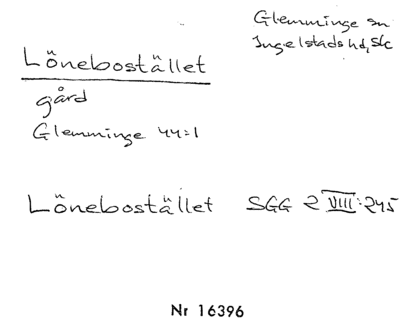 Glemminge sn
Ingelstads hd, Sk
Lönebostället
gård
Glemminge 44:1
Lönebostället SGG 2 VIII:245
Nr 16396